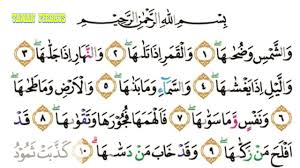 بِسْمِ اللهِ الرَّحْمٰنِ الرَّحِيْمِ
وَالشَّمْسِ وَضُحٰىهَا ۝١ وَالْقَمَرِ اِذَا تَلٰىهَا ۝٢ وَالنَّهَارِ اِذَا جَلّٰىهَا ۝٣
وَالَّيْلِ اِذَا يَغْشٰىهَا ۝٤ وَالسَّمَاۤءِ وَمَا بَنٰىهَا ۝٥ وَالْاَرْضِ وَمَا طَحٰىهَا ۝٦
وَنَفْسٍ وَّمَا سَوّٰىهَا ۝٧ فَاَلْهَمَهَا فُجُوْرَهَا وَتَقْوٰىهَا ۝٨ قَدْ
اَفْلَحَ مَنْ زَكّٰىهَا ۝٩ وَقَدْ خَابَ مَنْ دَسّٰىهَا ۝١٠ كَذَّبَتْ ثَمُوْدُ